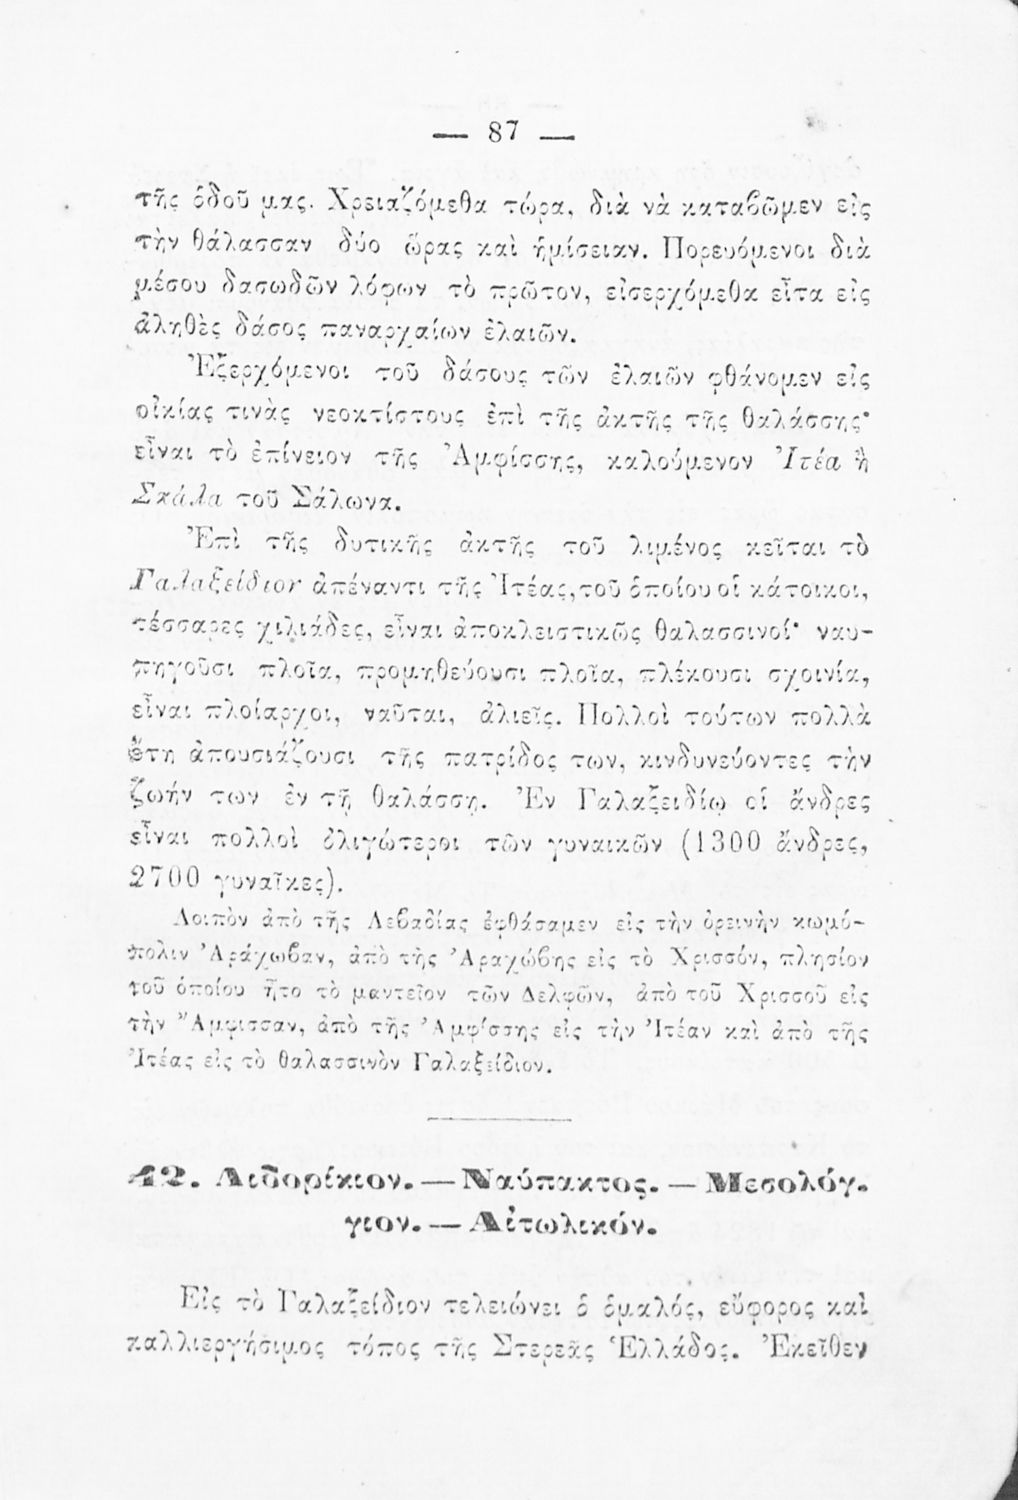 — 87 —
τῆς ὁδοῦ μας. Χρειαζόμεθα τώρα, διὰ νὰ καταβῶμεν εἰς
τὴν θάλασσαν δύο ὥρας καὶ ἡμίσειαν. Πορευόμενοι διὰ
μέσου δασωδῶν λόφων τὸ πρῶτον, εἰσερχόμεθα εἶτα εἰς
ἀληθὲς δάσος παναρχαίων ἐλαιῶν.
Ἐξερχόμενοι τοῦ δάσους τῶν ἐλαιῶν φθάνομεν εἰς
οἰκίας τινὰς νεοκτίστους ἐπὶ τῆς ἀκτῆς τῆς θαλάσσης·
εἶναι τὸ ἐπίνειον τῆς Ἀμφίσσης, καλούμενον Ἰτέα ἢ
Σκάλα τοῦ Σάλωνα.
Ἐπὶ τῆς δυτικῆς ἀκτῆς τοῦ λιμένος κεῖται τὸ
Γαλαξείδιον ἀπέναντι τῆς Ἰτέας, τοῦ ὁποίου οἱ κάτοικοι,
τέσσαρες χιλιάδες, εἶναι ἀποκλειστικῶς θαλασσινοί· ναυ-
πηγοῦσι πλοῖα, προμηθεύουσι πλοῖα, πλέκουσι σχοινία,
εἶναι πλοίαρχοι, ναῦται, ἁλιεῖς. Πολλοὶ τούτων πολλὰ
ἔτη ἀπουσιάζουσι τῆς πατρίδος των, κινδυνεύοντες τὴν
ζωήν των ἐν τῇ θαλάσσῃ. Ἐν Γαλαξειδίῳ οἱ ἄνδρες
εἶναι πολλοὶ ὀλιγώτεροι τῶν γυναικῶν (1300 ἄνδρες,
2700 γυναῖκες).
Λοιπὸν ἀπὸ τῆς Λεβαδίας ἐφθάσαμεν εἰς τὴν ὀρεινὴν κωμό-
πολιν Ἀράχωβαν, ἀπὸ τῆς Ἀραχώβης εἰς τὸ Χρισσόν, πλησίον
τοῦ ὁποίου ἦτο τὸ μαντεῖον τῶν Δελφῶν, ἀπὸ τοῦ Χρισσοῦ εἰς
τὴν Ἄμφισσαν, ἀπὸ τῆς Ἀμφίσσης εἰς τὴν Ἰτέαν καὶ ἀπὸ τῆς
Ἰτέας εἰς τὸ θαλασσινὸν Γαλαξείδιον.
42. Λιδορίκιον. — Ναύπακτος. — Μεσολόγ-
γιον. — Αἰτωλικόν.
Εἰς τὸ Γαλαξείδιον τελειώνει ὁ ὁμαλός, εὔφορος καὶ
καλλιεργήσιμος τόπος τῆς Στερεᾶς Ἑλλάδος. Ἐκεῖθεν